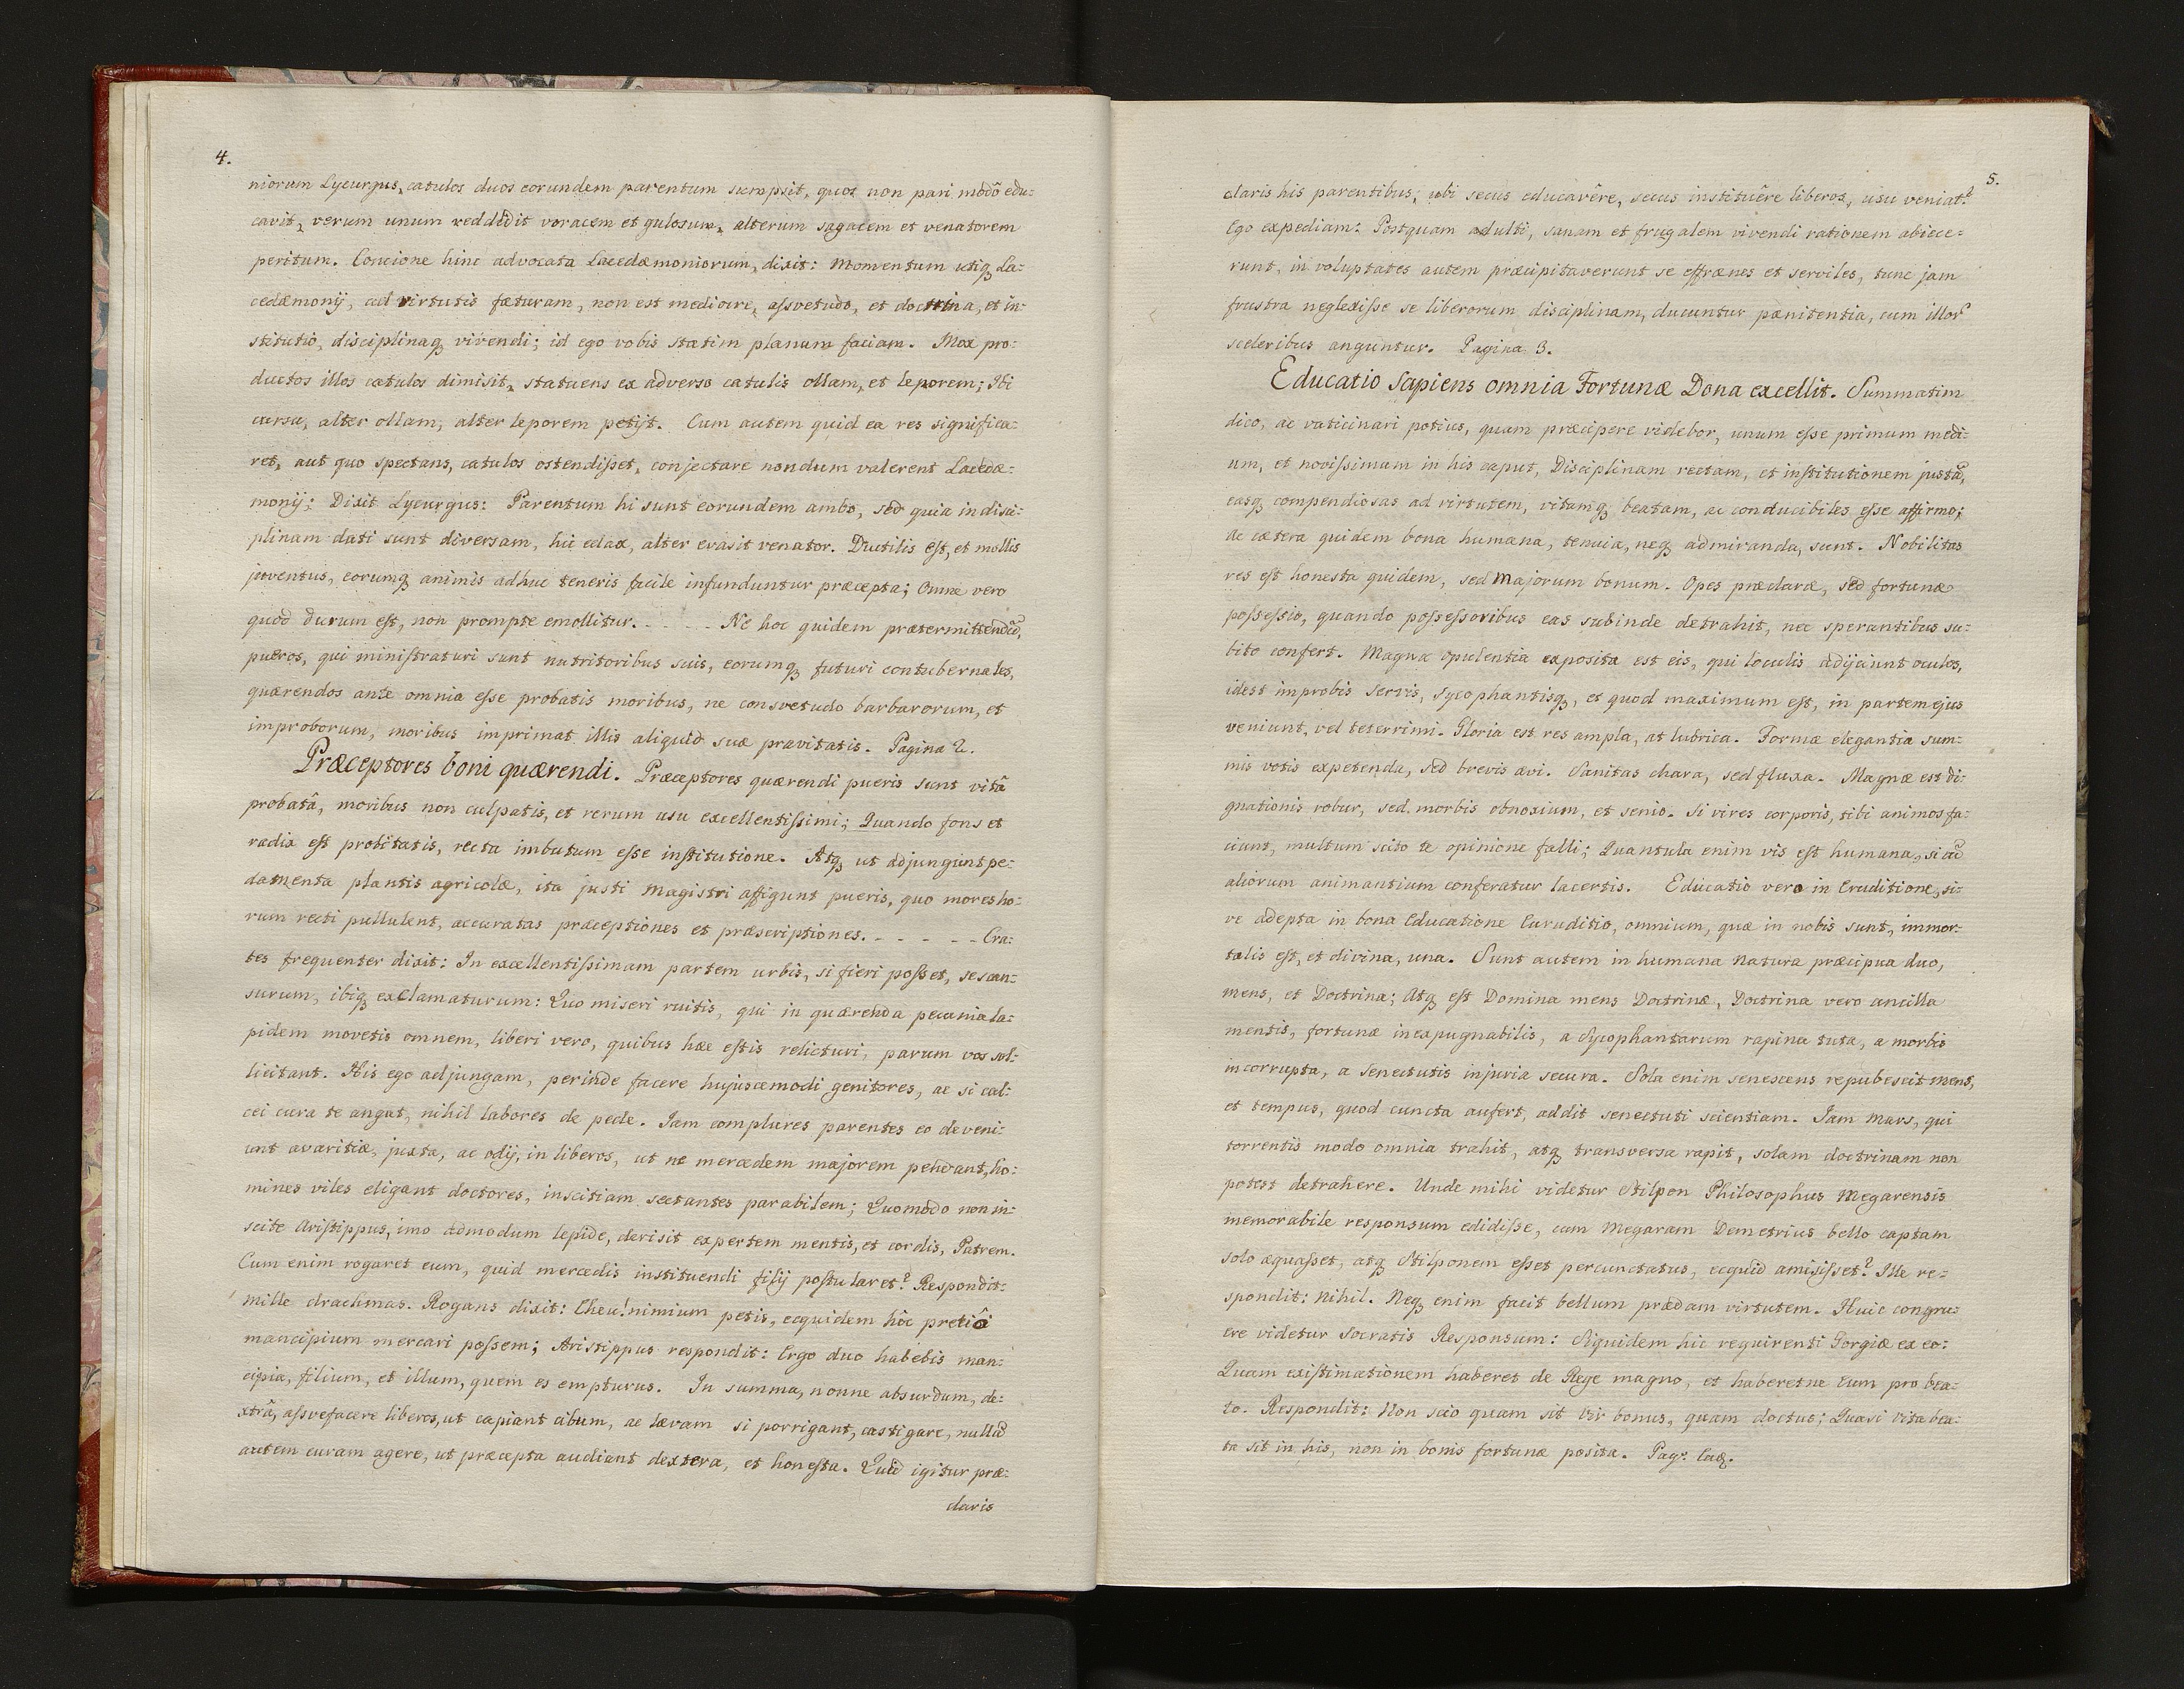 4.
niorum Lycurgus, catulos duos eorundem parentum sumpsit, quos non pari modô edu:
cavit, verum unum reddidit voracem et gulosum, alterum sagacem et venatorem
peritum. Concione hinc advocata Lacedæmoniorum, dixit: Momentum utiq La:
cedæmonij, ad virtutis fæturam, non est mediocre, aſsvetudo, et doctrina, et in:
stitutio, disciplinaq vivendi; id ego vobis statim planum faciam. Mox pro:
ductos illos catulos dimisit, statuens ex adverso catulis ollam, et leporem; Ibi
cursu, alter ollam, alter leporem petijt. Cum autem quid ea res significa:
ret, aut quo spectans, catulos ostendiſset, conjectare nondum valerent Lacedæ:
monij; Dixit Lycurgus: Parentum hi sunt eorundem ambo, sed quia in disci:
plinam dati sunt diversam, hic edax, alter evasit venator. Ductilis eſt, et mollis
juventus, eorumq animis adhuc teneris facile infunduntur præcepta; Omne vero
quod durum eſt, non prompte emollitur. - - - - - Ne hoc quidem prætermittendū,
pueros, qui miniſtraturi sunt nutritoribus suis, eorumq futuri contubernales,
quærendos ante omnia eſse probatis moribus, ne consvetudo barbarorum, et
improborum, moribus imprimat illis aliquid suæ pravitatis. Pagina 2.
Præceptores boni quærendi. Præceptores quærendi pueris sunt vitâ
probatâ, moribus non culpatis, et rerum usu excellentiſsimi; Quando fons et
radix eſt probitatis, recta imbutum eſse inſtitutione. Atq ut adjungunt pe:
damenta plantis agricolæ, ita justi Magistri affigunt pueris, quo mores ho:
rum recti pullulent, accuratas præceptiones et præscriptiones. - - - - - Cra:
tes frequenter dixit: In excellentiſsimam partem urbis, si fieri poſset, se scan:
surum, ibiq exclamaturum: Quo miseri ruitis, qui in quærenda pecunia la:
pidem movetis omnem, liberi vero, quibus hæc eſtis relicturi, parum vos sol:
licitant. His ego adjungam, perinde facere hujuscemodi genitores, ac si cal:
cei cura te angat, nihil labores de pede. Iam complures parentes eo deveni:
unt avaritiæ, juxta, ac odij, in liberos, ut ne mercedem majorem pendant, ho:
mines viles eligant doctores, inscitiam sectantes parabilem; Quomodo non in:
scite Ariſtippus, imo admodum lepide, derisit expertem mentis, et cordis, Patrem.
Cum enim rogaret eum, quid mercedis instituendi filij poſtularet? Respondit:
mille drachmas. Rogans dixit: Eheu! nimium petis, ecquidem hôc pretiô
mancipium mercari poſsem; Aristippus respondit: Ergo duo habebis man:
cipia, filium, et illum, quem es empturus. In summa, nonne absurdum, de:
xtrâ, aſsvefacere liberos, ut capiant cibum, ac lævam si porrigant, castigare, nullā
autem curam agere, ut præcepta audiant dextera, et honeſta. Quid igitur præ:
claris
5.
claris his parentibus, ubi secus educavêre, secus instituêre liberos, usu veniat?
Ego expediam: Postquam adulti, sanam et frugalem vivendi rationem abiece:
runt, in voluptates autem præcipitaverunt se effrænes et serviles, tunc jam
frustra neglexiſse se liberorum disciplinam, ducuntur pænitentia, cum illor
sceleribus anguntur. Pagina 3.
Educatio Sapiens omnia Fortunæ Dona excellit. Summatim
dico, ac vaticinari potius, quam præcipere videbor, unum eſse primum medi:
um, et noviſsimum in his caput, Disciplinam rectam, et inſtitutionem justā,
easq compendiosas ad virtutem, vitamq beatam, ac conducibiles eſse affirmo;
Ac cætera quidem bona humana, tenuia, neq admiranda, sunt. Nobilitas
res eſt honesta quidem, sed Majorum bonum. Opes præclaræ, sed fortunæ
poſseſsio, quando poſseſsoribus eas subinde detrahit, nec sperantibus su:
bito confert. Magna opulentia exposita est eis, qui loculis adijciunt oculos,
idest improbis servis, sycophantisq, et quod maximum eſt, in partem ejus
veniunt, vel teterrimi. Gloria est res ampla, at lubrica. Formæ elegantia sum:
mis votis expetenda, sed brevis ævi. Sanitas chara, sed fluxa. Magnæ est di:
gnationis robur, sed morbis obnoxium, et senio. Si vires corporis, tibi animos fa:
ciunt, multum scito te opinione falli; Quantula enim vis eſt humana, si cū
aliorum animantium conferatur lacertis. Educatio vero in Eruditione, si:
ve adepta in bona Educatione Euruditio, omnium, quæ in nobis sunt, immor:
talis eſt, et divina, una. Sunt autem in humana natura præcipua duo,
mens, et Doctrina; Atq eſt Domina mens Doctrinæ, Doctrina vero ancilla
mentis, fortunæ inexpugnabilis, a Sycophantarum rapina tuta, a morbis
incorrupta, a Senectutis injuria secura. Sola enim senescens repubescit mens,
et tempus, quod cuncta aufert, addit senectuti scientiam. Iam Mars, qui
torrentis modo omnia trahit, atq transversa rapit, solam doctrinam non
potest detrahere. Unde mihi videtur Stilpon Philosophus Megarensis
memorabile responsum edidiſse, cum Megaram Demetrius bello captam
solo æquaſset, atq Stilponem eſset percunctatus, ecquid amisiſset? Ille re:
spondit: Nihil. Neq enim facit bellum prædam virtutem. Huic congru:
ere videtur Socratis Responsum: Siquidem hic requirenti Gorgiæ ex eo:
Quam exiſtimationem haberet de Rege magno, et haberetne Eum pro bea:
to. Respondit: Non scio quam sit Vir bonus, quam doctus; Quasi vita bea:
ta sit in his, non in bonis fortunæ posita. Pag: